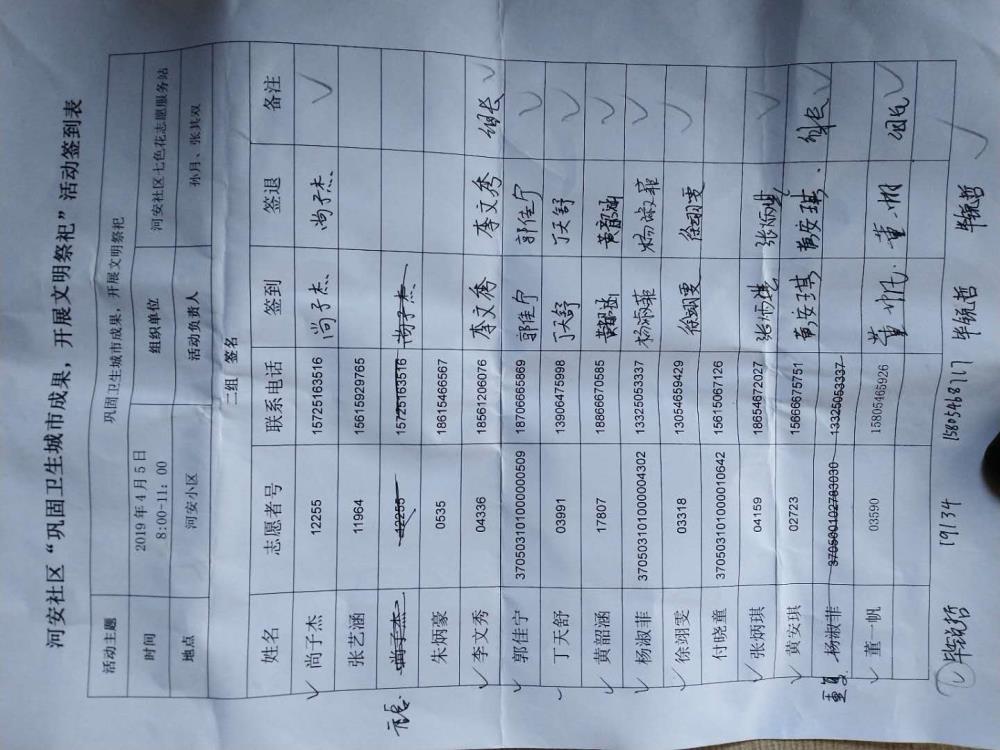 河安社区“巩固卫生城市成果，开展文明祭祀”活动签到表
活动主题 巩固卫生城市成果，开展文明祭祀
时间 2019年4月5日 8:00-11：00 组织单位 河安社区七色花志愿服务站
地点 河安小区 活动负责人 孙月、张其双
二组 签名
姓名 志愿者号 联系电话 签到 签退 备注
尚子杰 12255 15725163516 尚子杰 尚子杰 ✓
张艺涵 11964 15615929765
尚子杰 12255 15725163516 尚子杰
朱炳豪 0535 18615466567
李文秀 04336 18561206076 李文秀 李文秀 组长 ✓
郭佳宁 370503101000000509 18706665869 郭佳宁 郭佳宁 ✓
丁天舒 03991 13906475998 丁天舒 丁天舒 ✓
黄韶涵 17807 18866670585 黄韶涵 黄韶涵 ✓
杨淑菲 370503101000004302 13325053337 杨淑菲 杨淑菲 ✓
徐翊雯 03318 13054659429 徐翊雯 徐翊雯 ✓
付晓童 370503101000010642 15615067126
张炳琪 04159 18654672027 张炳琪 张炳琪 ✓
黄安琪 02723 15666675751 黄安琪 黄安琪 组长 ✓
重复 杨淑菲 370500102783030 13325053337
董一帆 03590 15805465926 董一帆 董一帆 ✓
毕锐哲 19134 15805468717 毕锐哲 毕锐哲 ✓